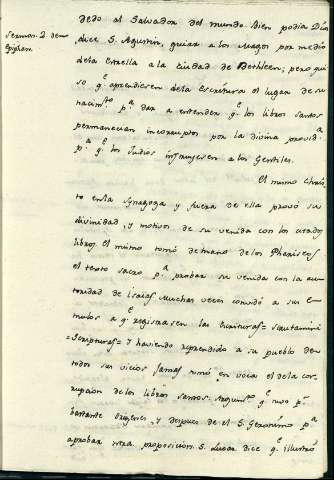 Sermon. 2. de
Epiphan.
dedo al Salvador del mundo. Bien podia Dios
dice S. Agustin, guiar a los Magos por medio
de la Estrella a la ciudad de Bethleen; pero qui
so q.e aprendiesen de la Escritura el lugar de su
nacim.to p.a dar a entender q.e los libros santos
permanecian incorruptos por la divina provid.a
p.a q.e los Judios instruyesen a los Gentiles.
El mismo Chris
to en la Synagoga y fuera de ella provó su
divinidad, y motivos de su venida con los citados
libros. El mismo tomó de mano de los Phariseos
el texto sacro p.a probar su venida con la au
toridad de Isaias. Muchas veces convidó a sus e
mulos a q.e registrasen las escrituras = scrutamini
= Scripturas = y haviendo reprendido a su pueblo de
todos sus vicios jamas tomó en voca el de la cor
rupcion de los libros santos. Argum.to q.e tuvo p.r
bastante Origenes, y despues de el S. Geronimo p.a
aprobar ntra. proposicion. S. Lucas dice q.e illustró